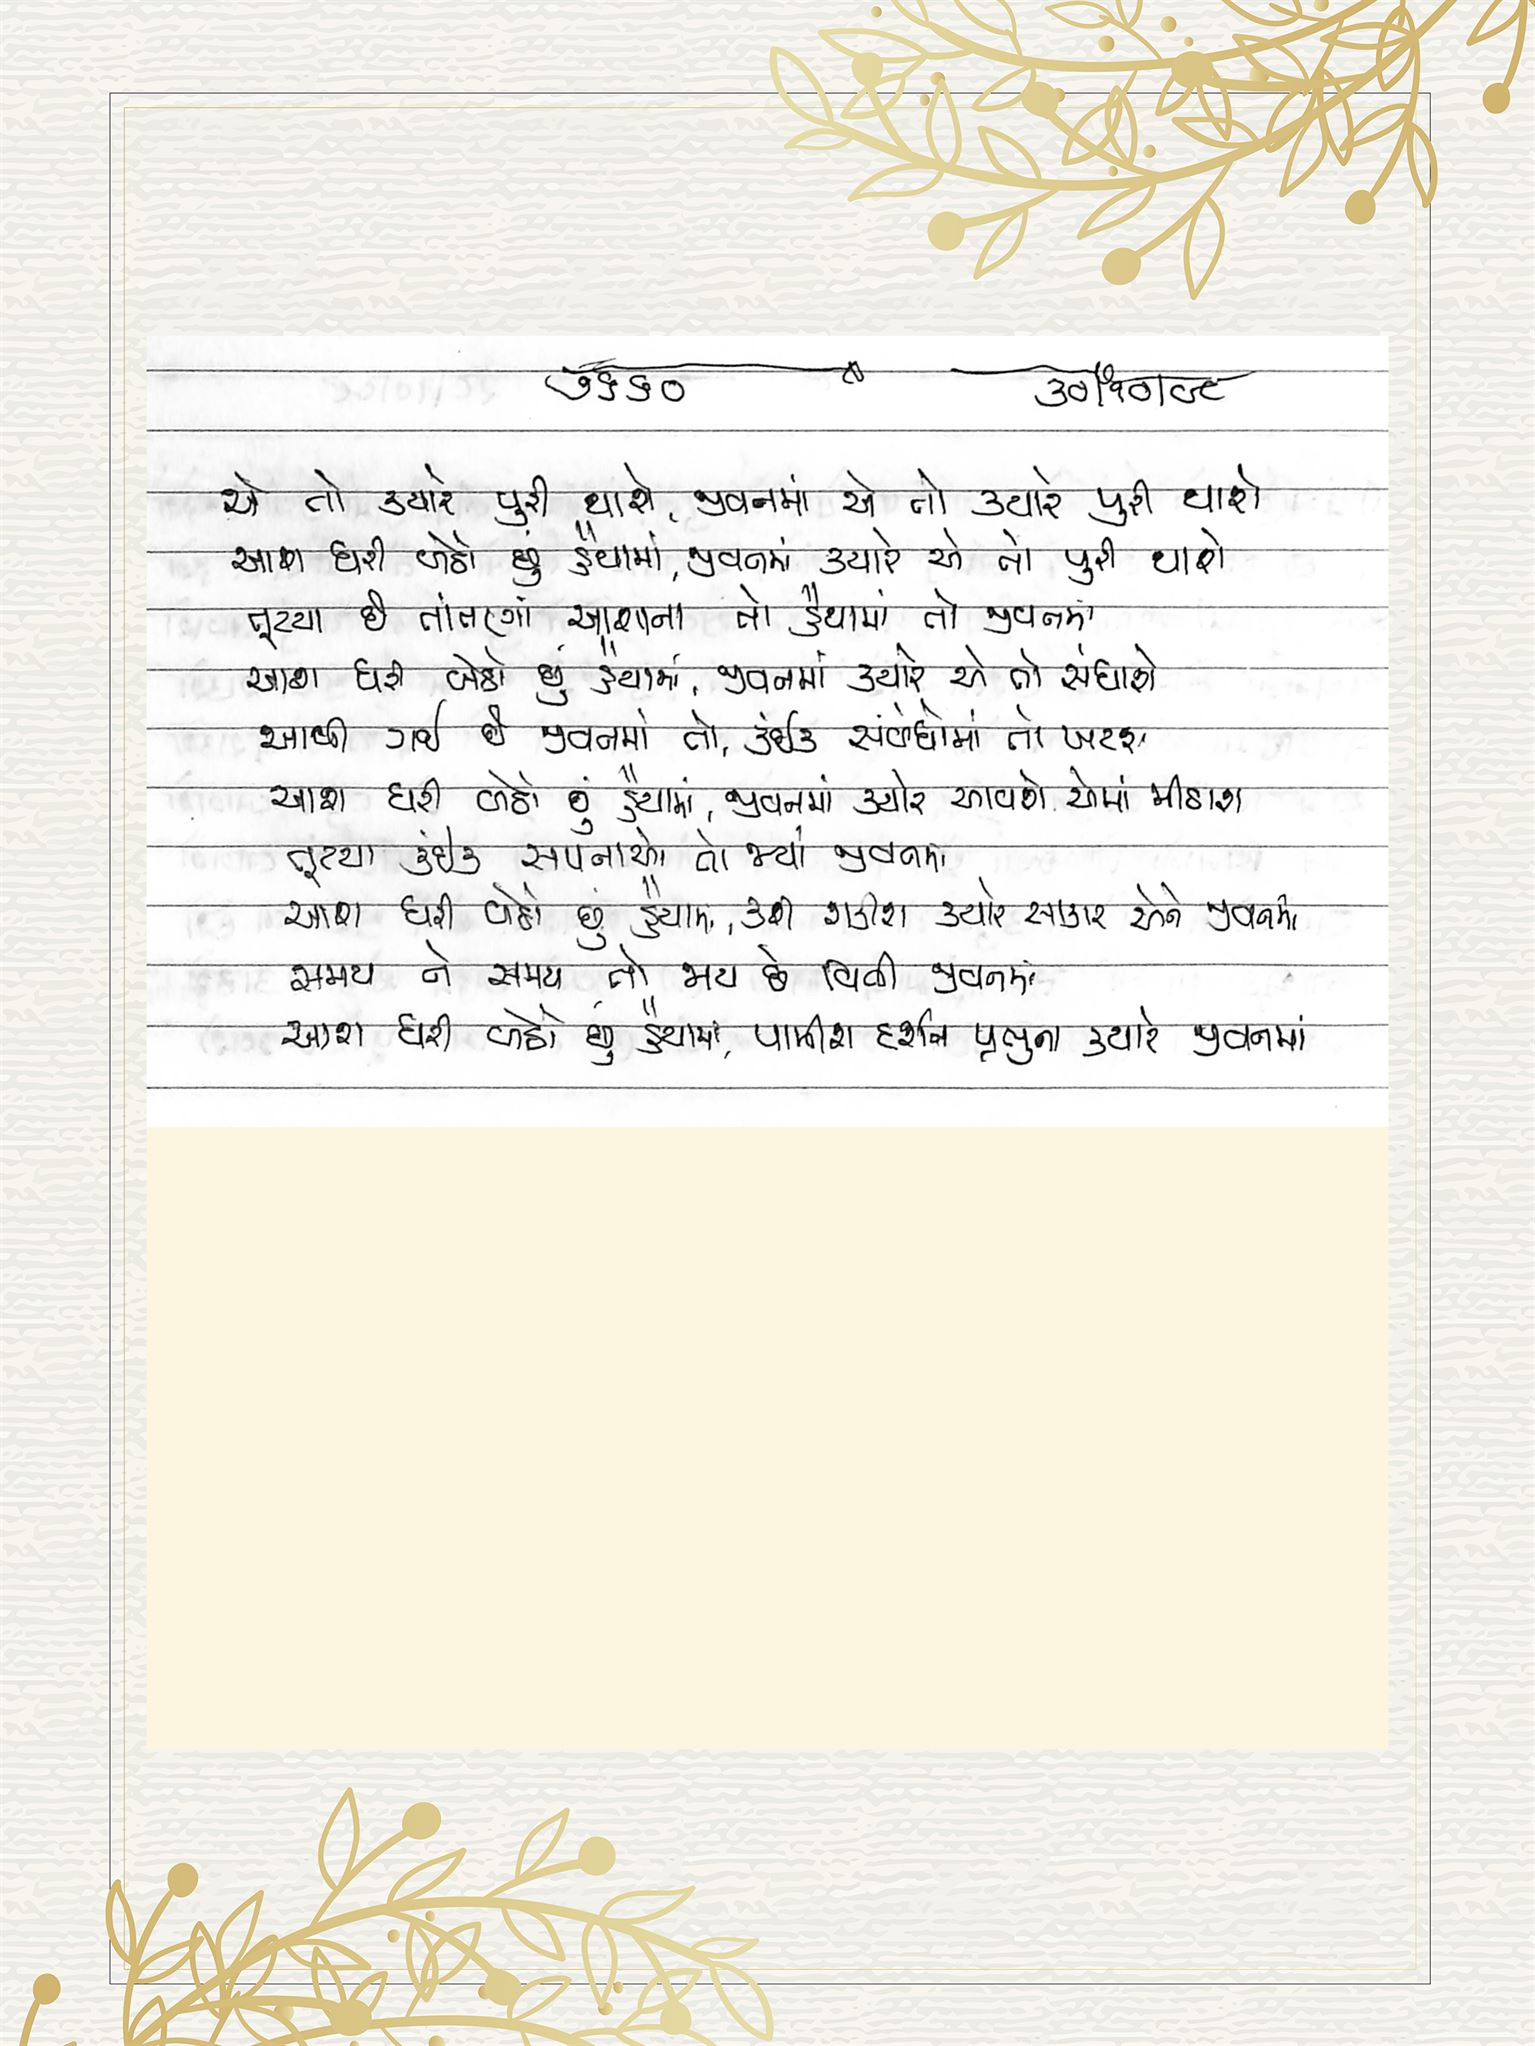 ૭૬૬૦ ૩૦/૧૦/૯૮
એ તો ક્યારે પુરી થાશે, જીવનમાં એ તો ક્યારે પુરી થાશે
આશ ધરી બેઠો છું હૈયામાં, જીવનમાં ક્યારે એ તો પુરી થાશે
તૂટયા છે તાંતણાં આશાના તો હૈયામાં તો જીવનમાં
આશ ધરી બેઠો છું હૈયામાં, જીવનમાં ક્યારે એ તો સંધાશે
આવી ગઈ છે જીવનમાં તો, કંઈક સંબંધોમાં તો ખટાશ
આશ ધરી બેઠો છું હૈયામાં, જીવનમાં ક્યારે આવશે એમાં મીઠાશ
તૂટયા કંઈક સપનાઓ તો જ્યાં જીવનમાં
આશ ધરી બેઠો છું હૈયામાં, કરી શકીશ ક્યારે સાકાર એને જીવનમાં
સમય ને સમય તો જાય છે વિતી જીવનમાં
આશ ધરી બેઠો છું હૈયામાં, પામીશ દર્શન પ્રભુના ક્યારે જીવનમાં